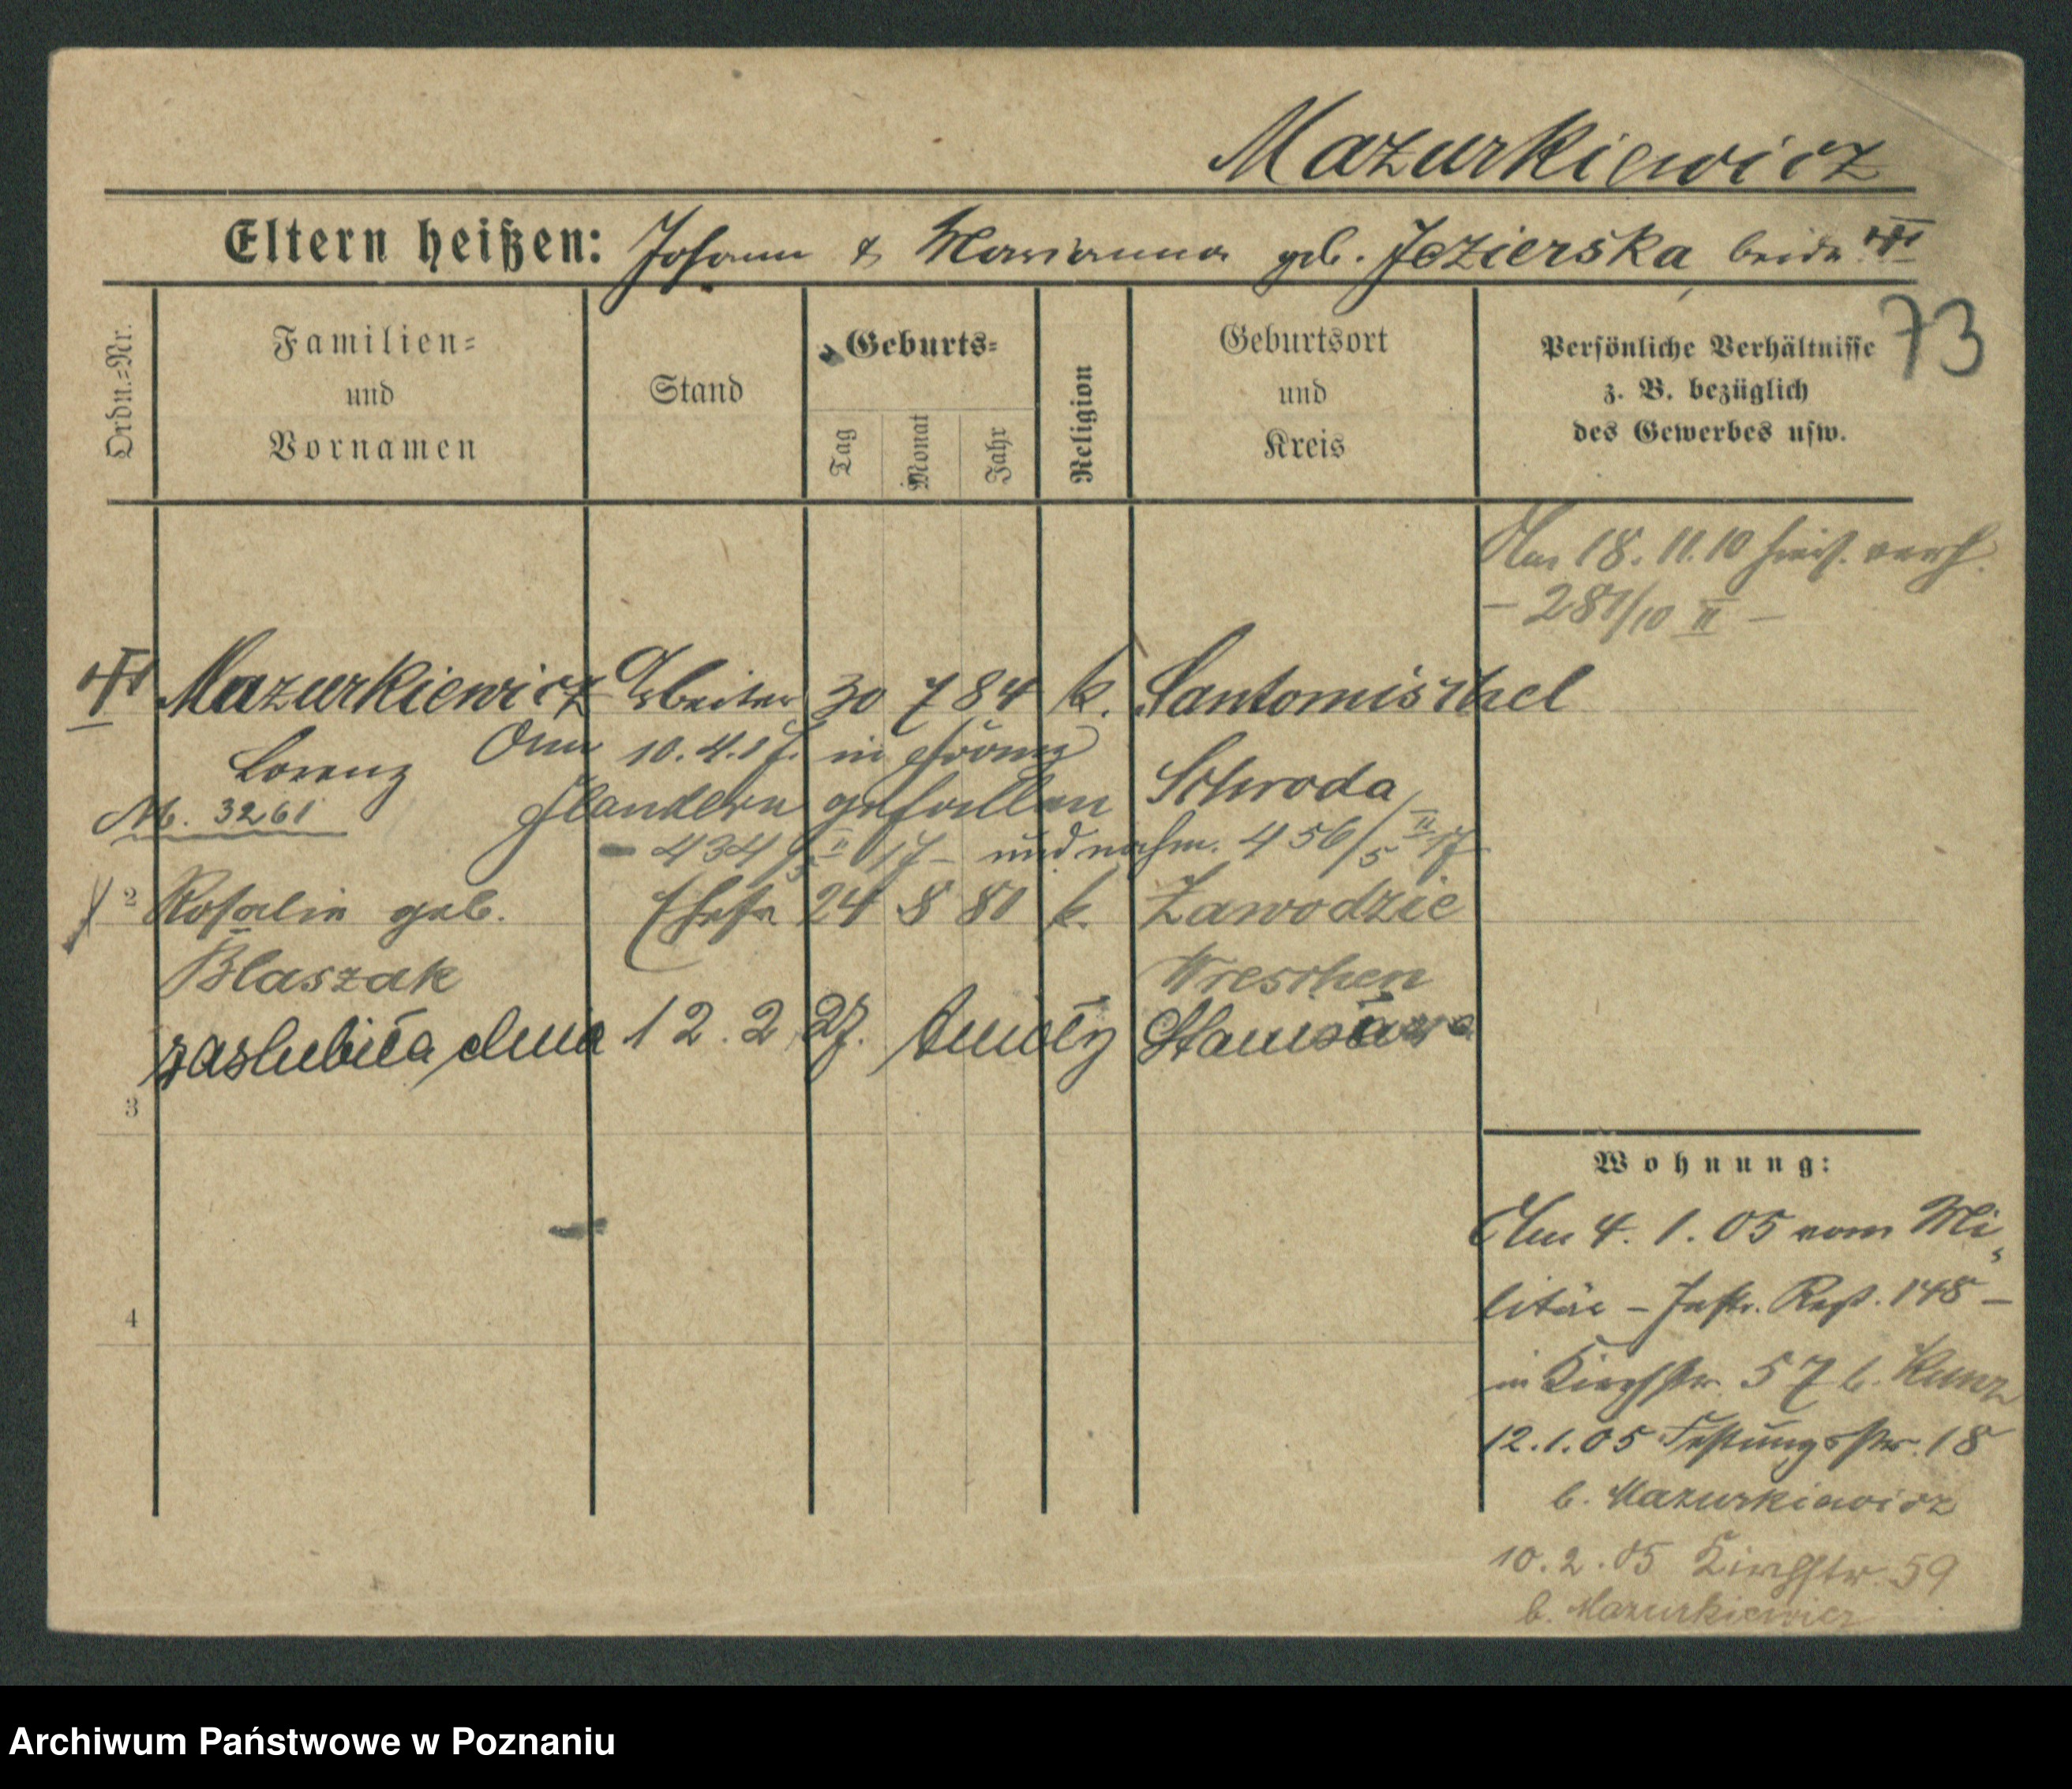 Mazurkiewicz
Eltern heißen: Johann & Marianna geb. Jezierska beide
73
Ordn.=Nr.
Familien=
und
Vornamen
Stand
Geburts=
Tag
Monat
Jahr
Religion
Geburtsort
und
Kreis
Persönliche Verhältnisse
z. B. bezüglich
des Gewerbes usw.
Am 18. 11. 10 hies. verh.
– 281/10 II –
Mazurkiewicz Arbeiter 30 7 84 k. Santomischel
Lorenz Am 10. 4. 17. in
Schroda
M. 3261 Flandern gefallen
– 434/5 II 17 – und nochm. 456/5 II 17
2 Rosalie geb. Ehefr 24 8 80 k. Zawodzie
Blaszak Wreschen
zaslubiła dnia 12. 2. 27. Stanisława
3
4
Wohnung:
Am 4. 1. 05 vom Mi-
litär – Inftr. Regt. 148 –
in Kirchstr. 57 b. Kunz
12. 1. 05 Festungsstr. 18
b. Mazurkiewicz
10. 2. 05 Kirchstr. 59
b. Mazurkiewicz
Archiwum Państwowe w Poznaniu